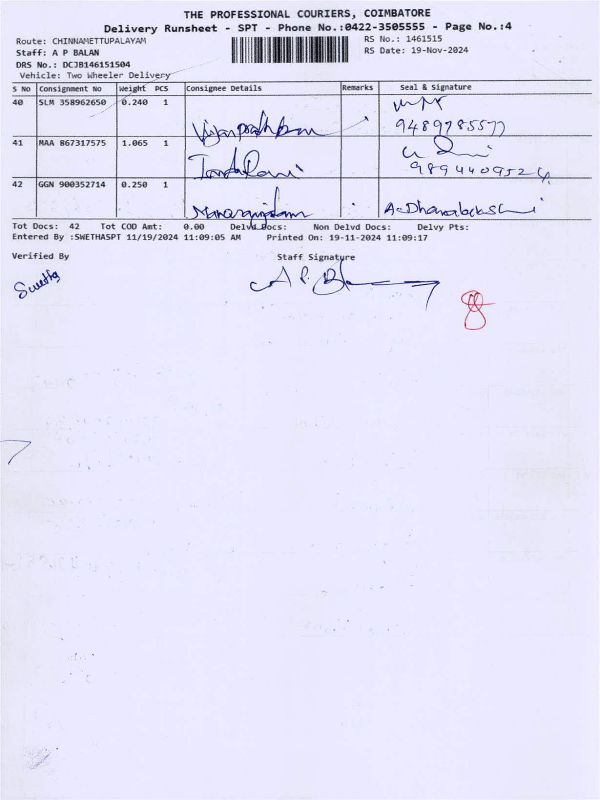 THE PROFESSIONAL COURIERS, COIMBATORE
Delivery Runsheet - SPT - Phone No.:0422-3505555 - Page No.:4
Route: CHINNAMETTUPALAYAM
RS No.: 1461515
Staff: A P BALAN
RS Date: 19-Nov-2024
DRS No.: DCJB146151504
Vehicle: Two Wheeler Delivery
S No Consignment No Weight PCS Consignee Details Remarks Seal & Signature
40 SLM 358962650 0.240 1
9489785577
41 MAA 867317575 1.065 1
42 GGN 900352714 0.250 1
Tot Docs: 42 Tot COD Amt: 0.00 Delvd Docs: Non Delvd Docs: Delvy Pts:
Entered By :SWETHASPT 11/19/2024 11:09:05 AM Printed On: 19-11-2024 11:09:17
Verified By Staff Signature
Swetha A P. B